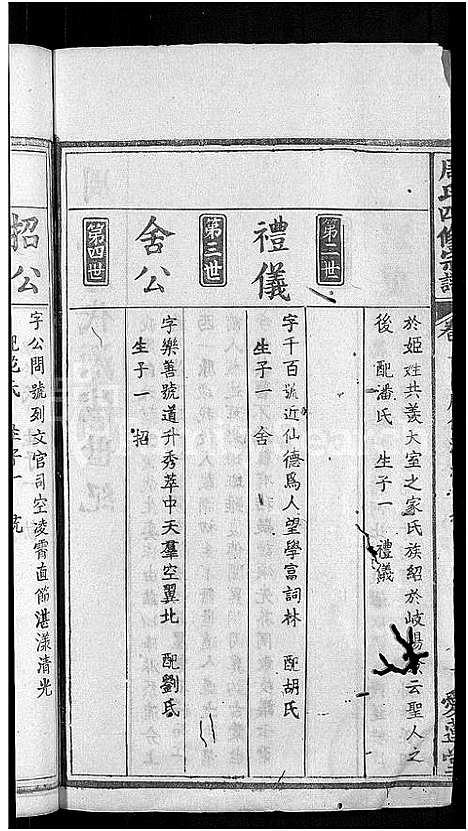 周氏四修宗譜
卷
愛蓮堂
於姬姓共羨大室之家氏族紹於岐陽
云聖人之
後 配潘氏 生子一 禮儀
第二世
禮儀
字千百號近仙德爲人望學富詞林 配胡氏
生子一 舍
第三世
舍公
字樂善號道升秀萃中天羣空冀北 配劉氏
生子一 招
第四世
招公
字公問號列文官司空凌霄直節湛漾清光
生子一